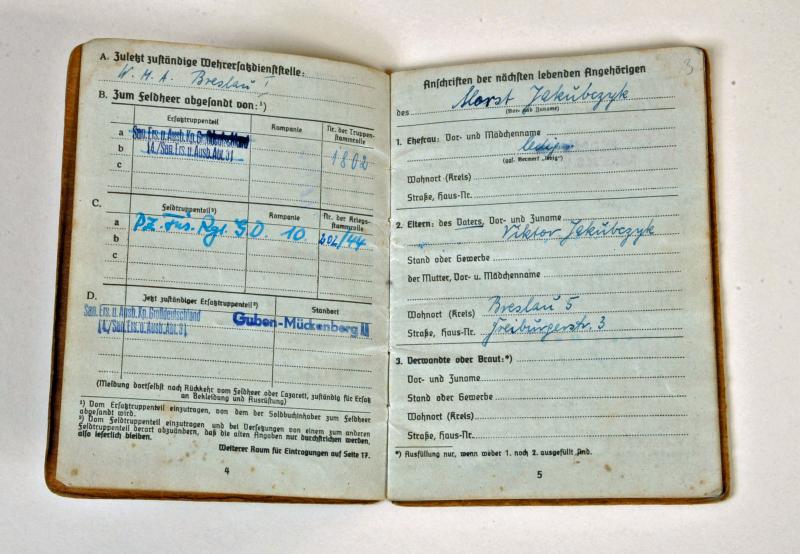 A. Zuletzt zuständige Wehrersatzdienststelle:
W. M. A. Breslau I
B. Zum Feldheer abgesandt von:¹)
Ersatztruppenteil Kompanie Nr. der Truppenstammrolle
a San. Ers. u. Ausb. Kp. Großdeutschland
b [4./San. Ers. u. Ausb. Abt. 3] 1802
c
C. Feldtruppenteil²) Kompanie Nr. der Kriegsstammrolle
a Pz. Füs. Rgt. G. D. 10
b 202/44
c
D. Jetzt zuständiger Ersatztruppenteil²) Standort
San. Ers. u. Ausb. Kp. Großdeutschland
[4./San. Ers. u. Ausb. Abt. 3] Guben-Mückenberg II
(Meldung dortselbst nach Rückkehr vom Feldheer oder Lazarett, zuständig für Ersatz
an Bekleidung und Ausrüstung)
¹) Vom Ersatztruppenteil einzutragen, von dem der Soldbuchinhaber zum Feldheer
abgesandt wird.
²) Vom Feldtruppenteil einzutragen und bei Versetzungen von einem zum anderen
Feldtruppenteil derart abzuändern, daß die alten Angaben nur durchstrichen werden,
also leserlich bleiben.
Weiterer Raum für Eintragungen auf Seite 17.
4
3
Anschriften der nächsten lebenden Angehörigen
des Horst Jakubczyk
(Vor- und Zuname)
1. Ehefrau: Vor- und Mädchenname
ledig
(ggf. Vermerk „ledig")
Wohnort (Kreis)
Straße, Haus-Nr.
2. Eltern: des Vaters, Vor- und Zuname
Viktor Jakubczyk
Stand oder Gewerbe
der Mutter, Vor- u. Mädchenname
Wohnort (Kreis) Breslau 5
Straße, Haus-Nr. Freiburgerstr. 3
3. Verwandte oder Braut:*)
Vor- und Zuname
Stand oder Gewerbe
Wohnort (Kreis)
Straße, Haus-Nr.
*) Ausfüllung nur, wenn weder 1. noch 2. ausgefüllt sind.
5